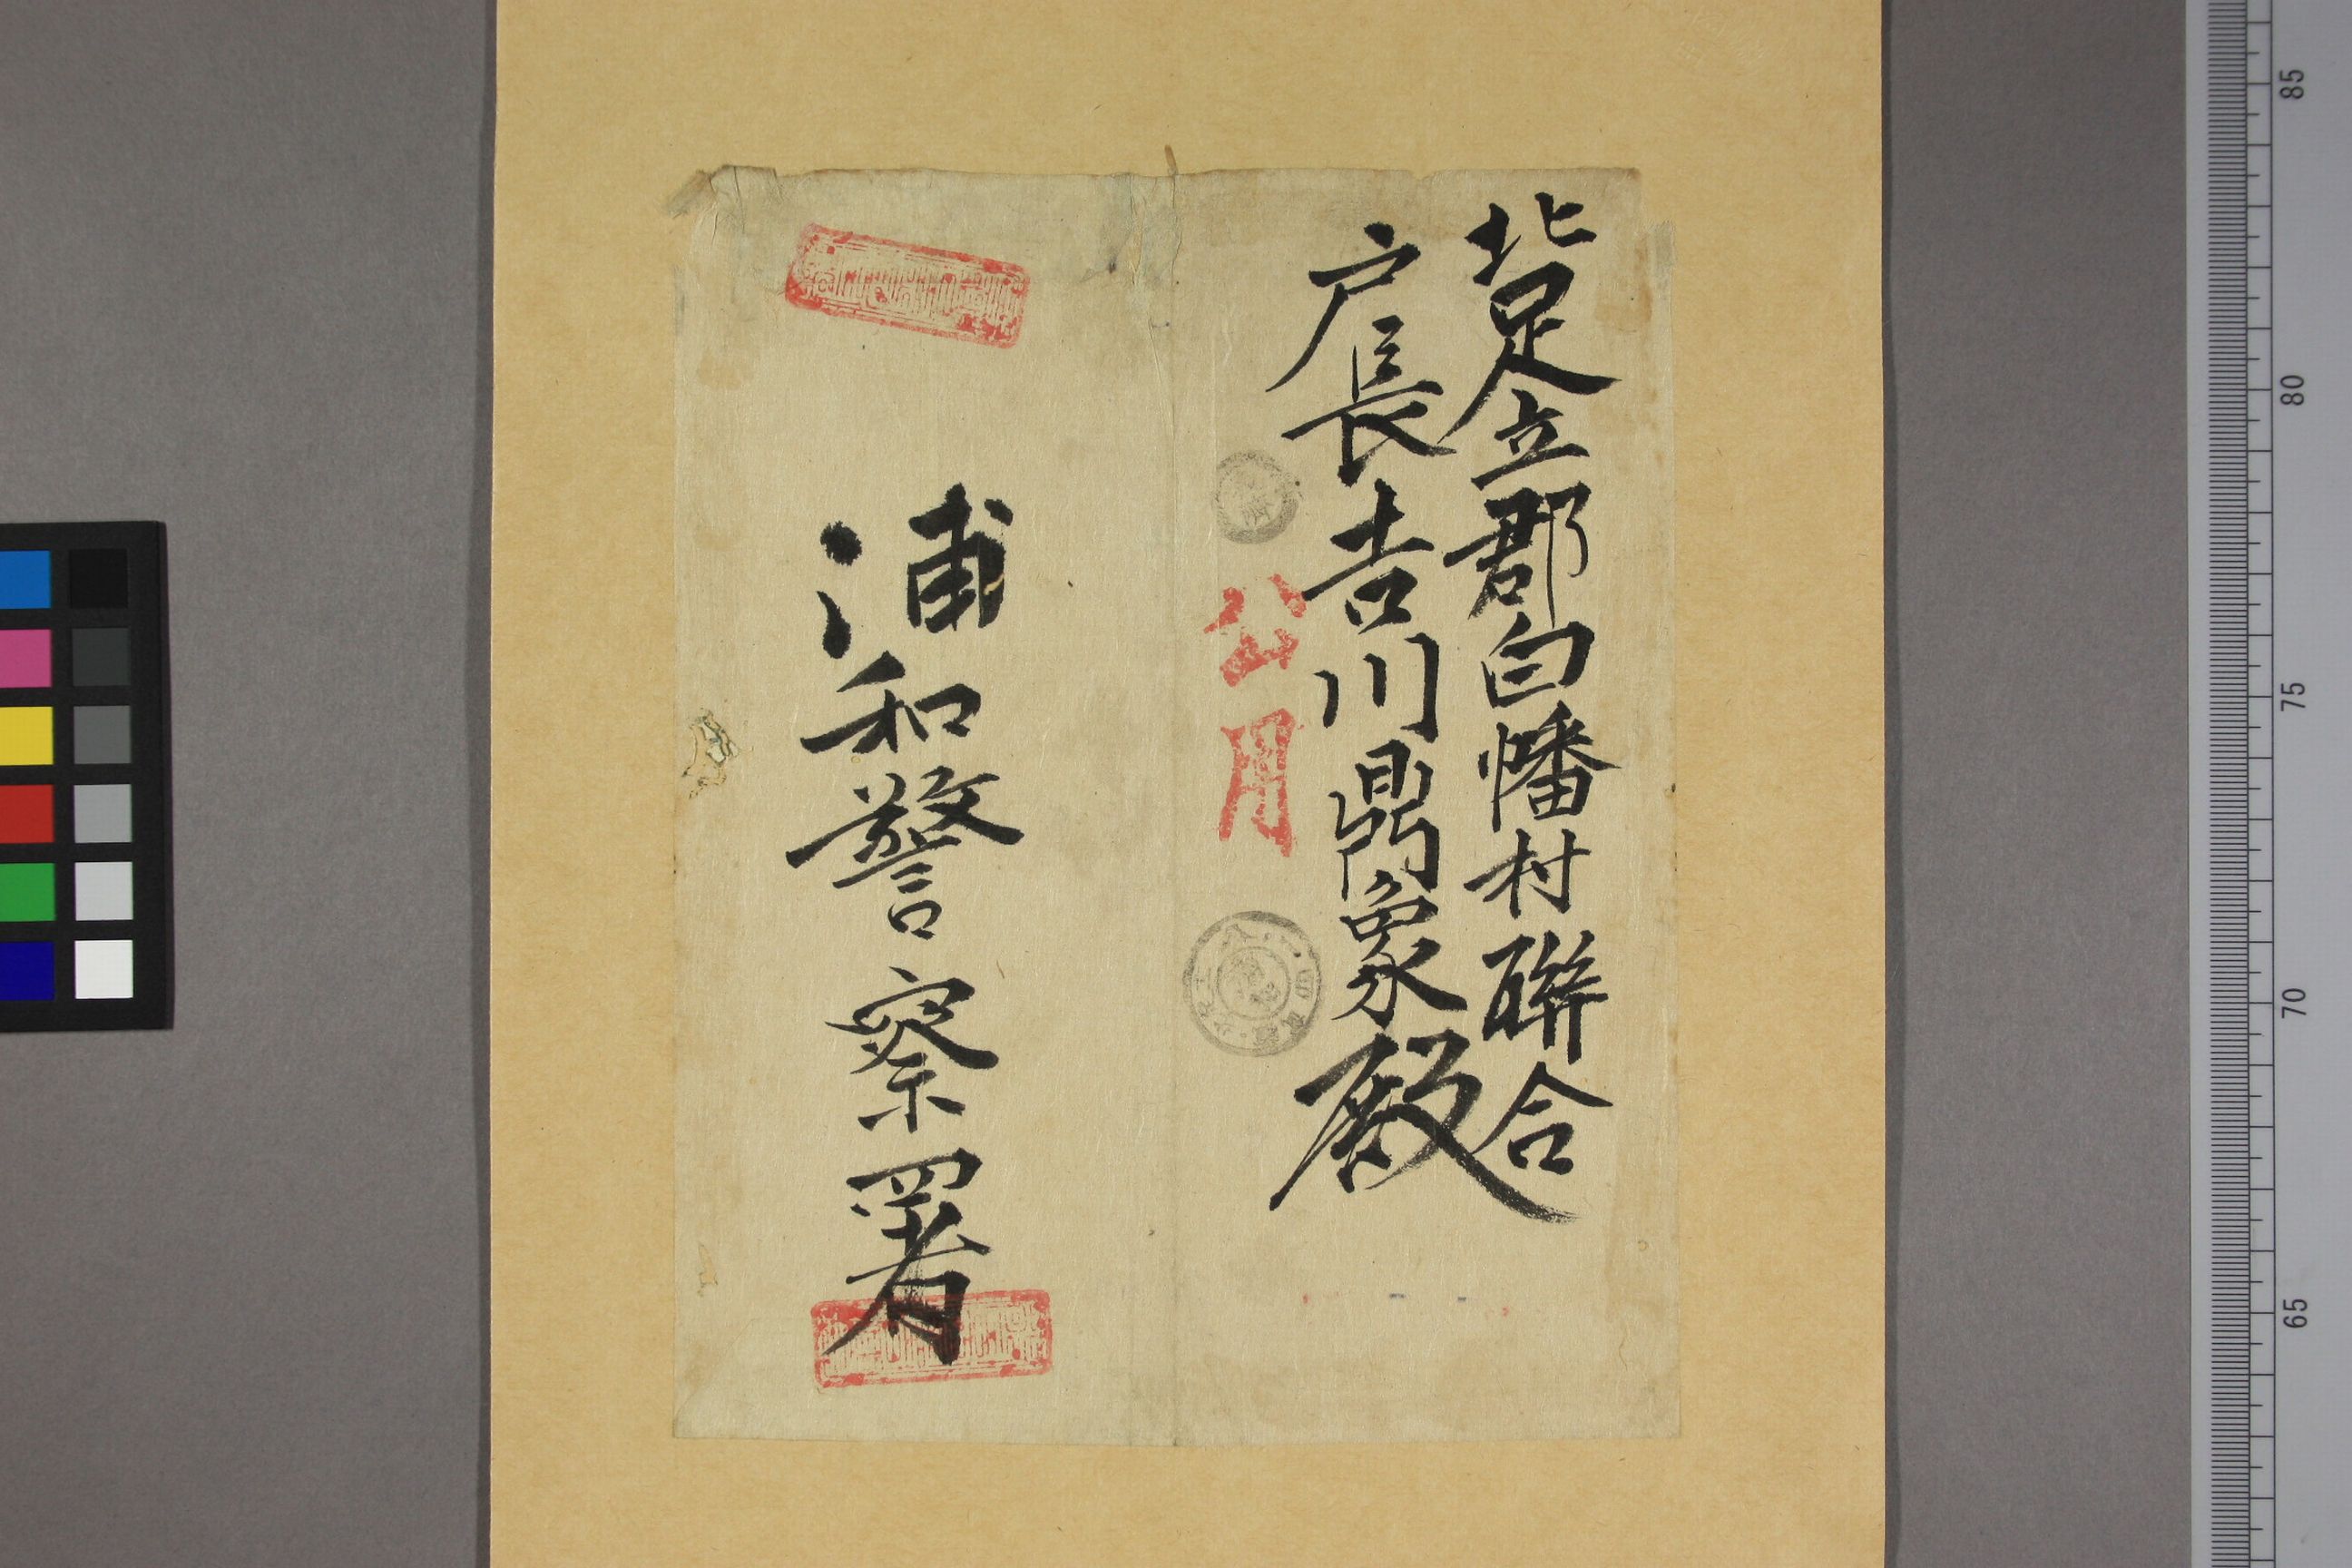 北足立郡白幡村聯合
戸長吉川鼎象殿
公用
浦和警察署
85
80
75
70
65